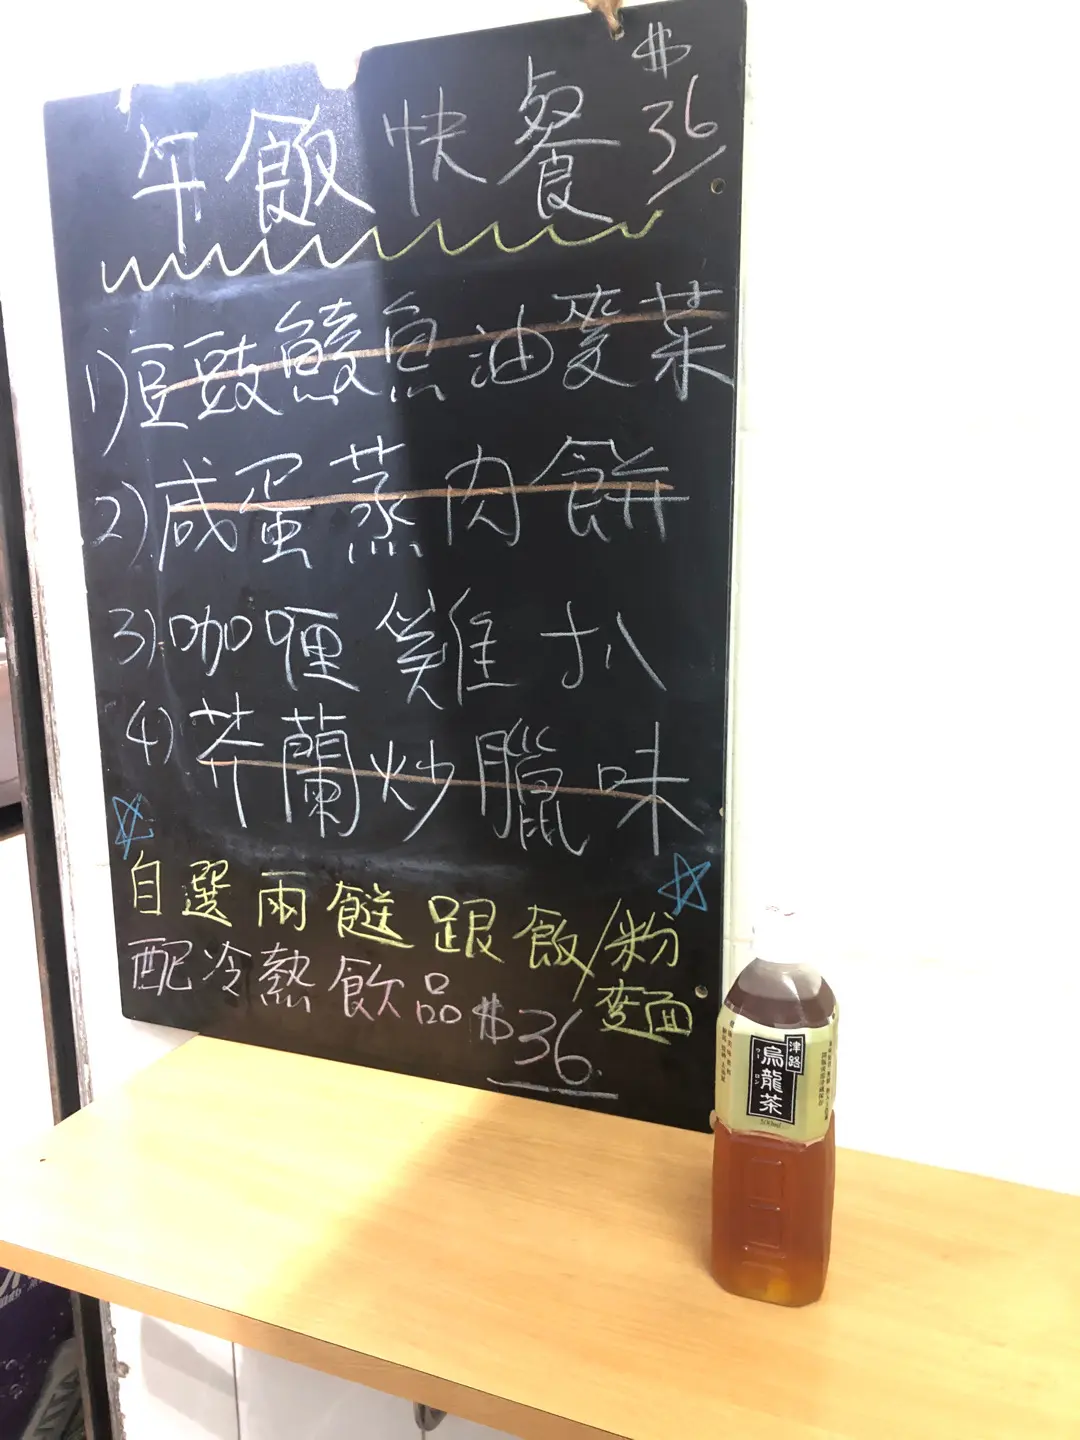 午飯快餐 $36/
1) 豆豉鯪魚油麥菜
2) 咸蛋蒸肉餅
3) 咖喱雞扒
4) 芥蘭炒臘味
自選兩餸跟飯/粉
麵
配冷熱飲品 $36
津路
烏龍茶
ウーロン
500ml